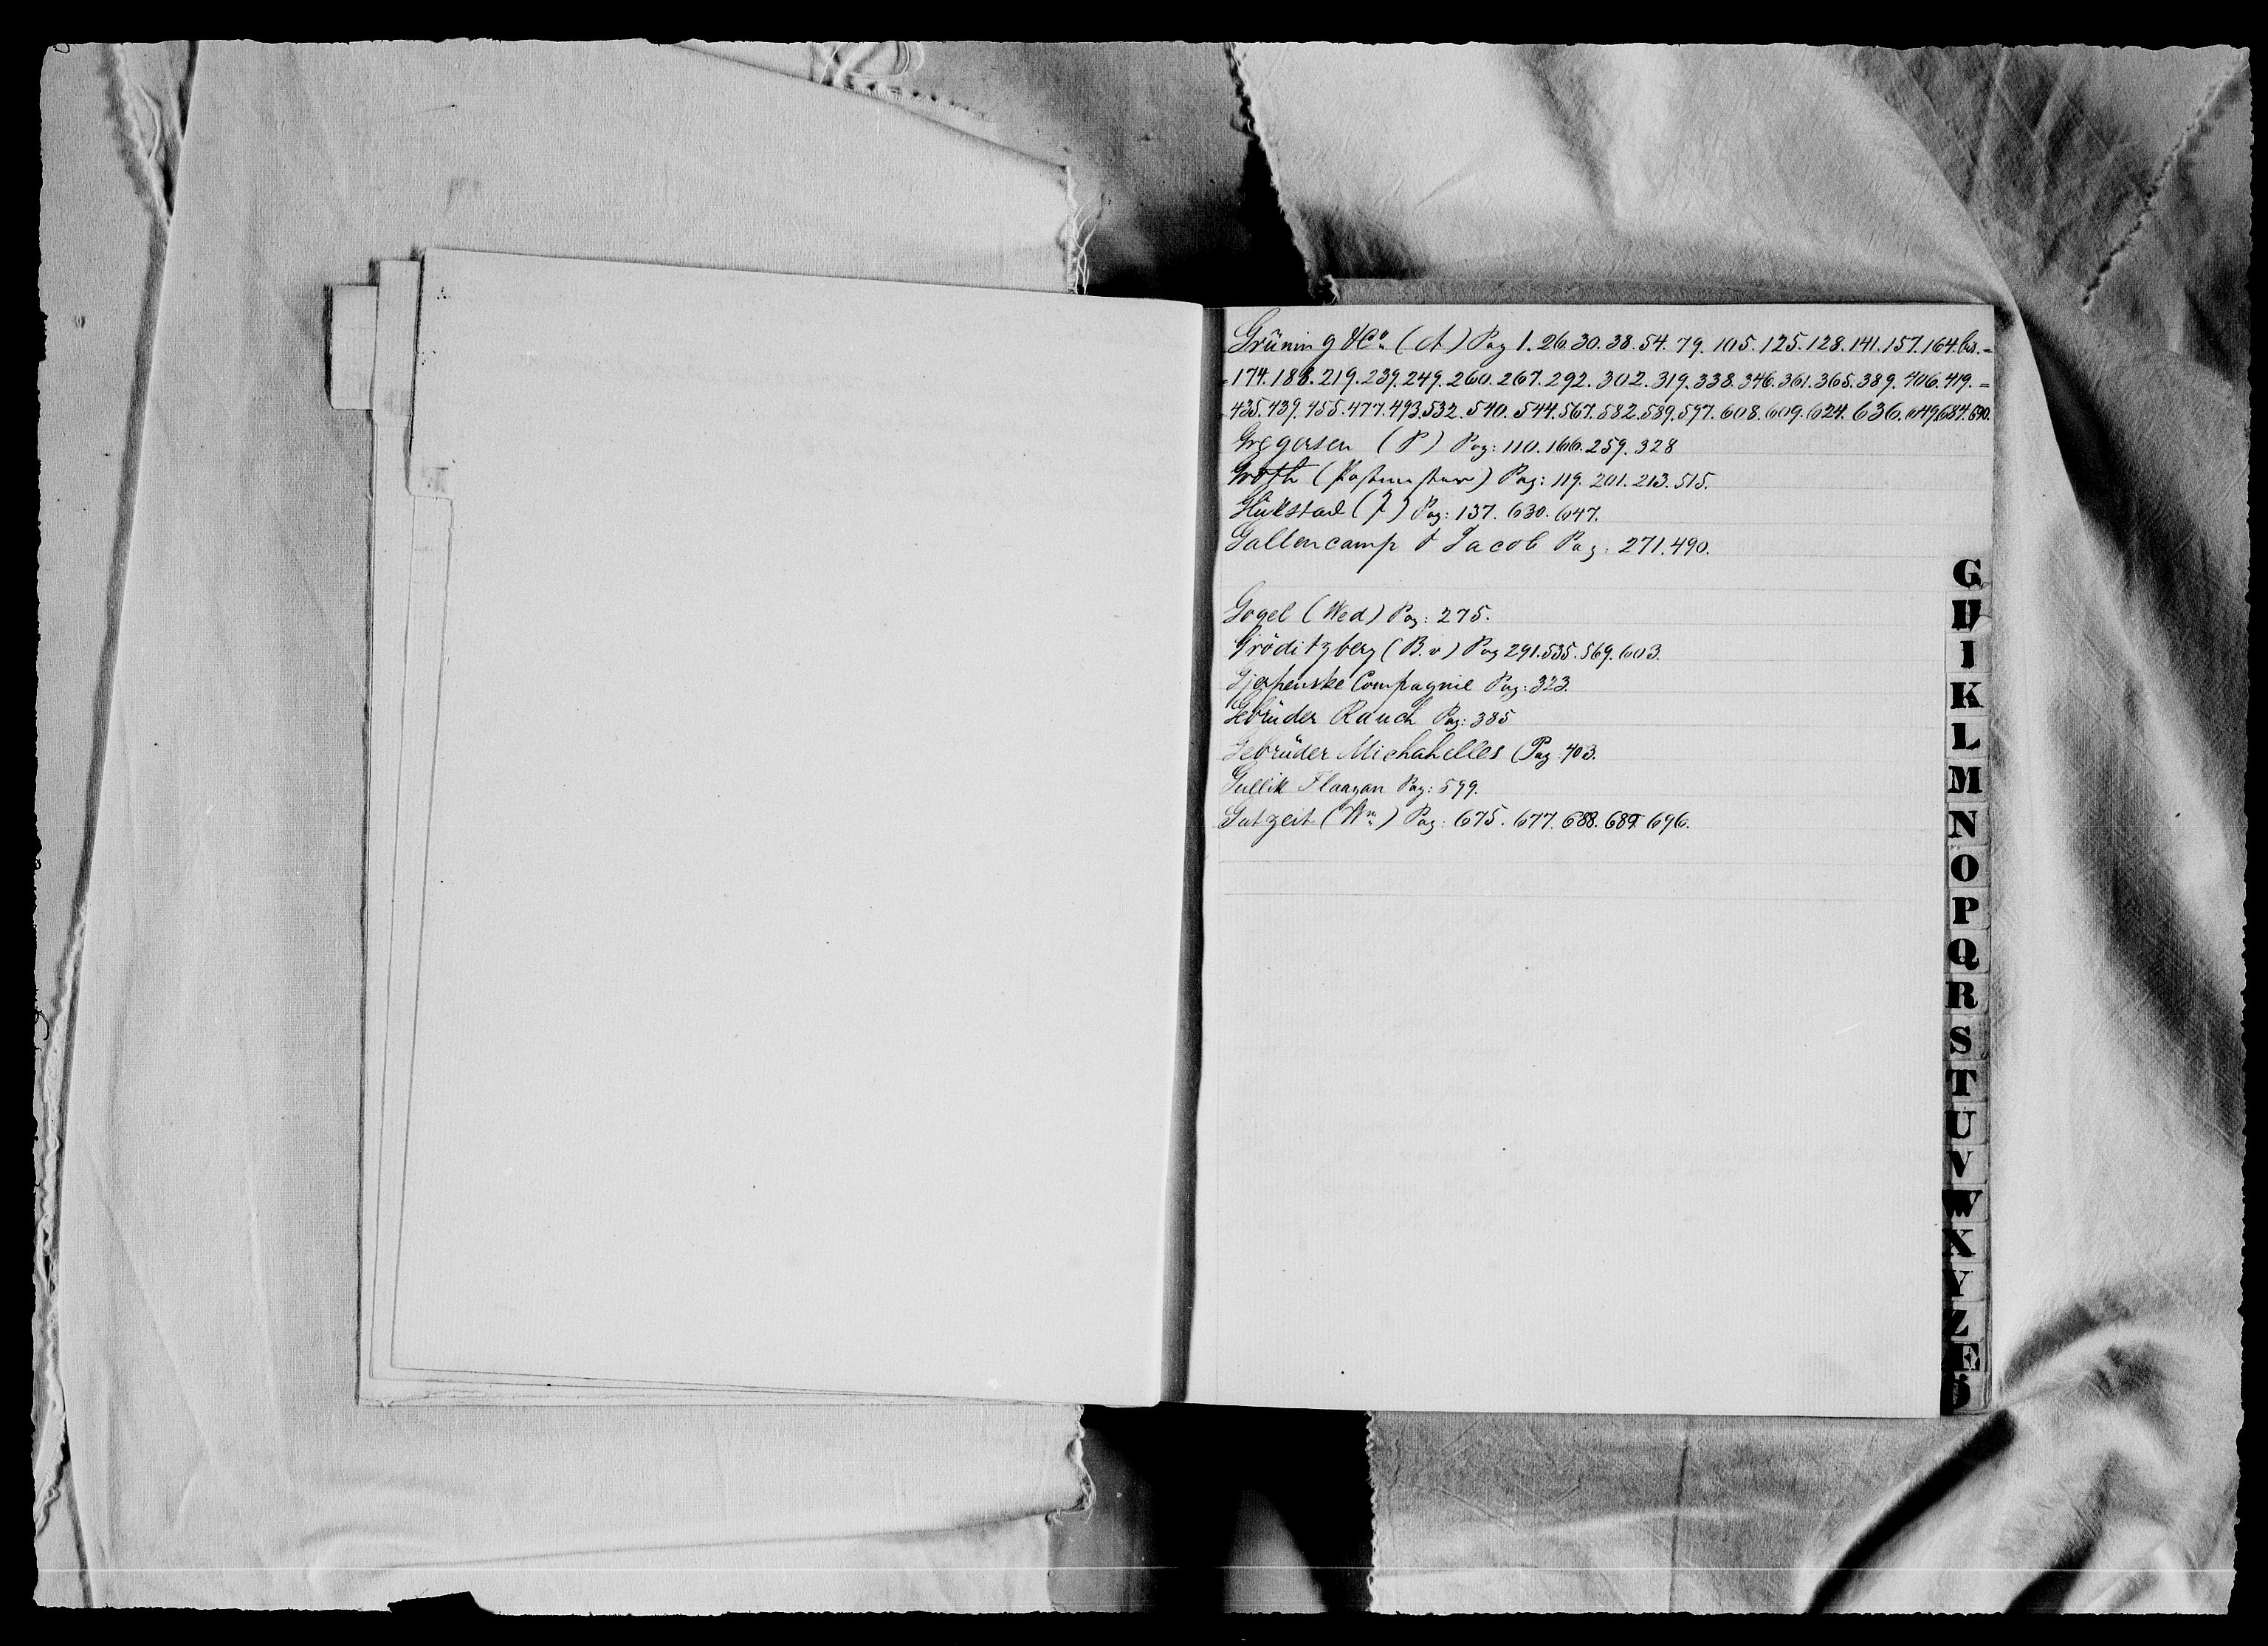 Grüning & Co (A) Pag 1. 26. 30. 38. 54. 79. 105. 125. 128. 141. 157. 164. bis. =
= 174. 188. 219. 239. 249. 260. 267. 292. 302. 319. 338. 346. 361. 365. 389. 406. 419. =
435. 439. 455. 477. 493. 532. 540. 544. 567. 582. 589. 597. 608. 609. 624. 636. 649. 684. 690.
Gregersen (P) Pag: 110. 166. 259. 328
Groth (Postmester) Pag: 119. 201. 213. 515.
Glükstad (J) Pag: 137. 630. 647.
Gallencamp & Jacob Pag: 271. 490.
Gogel (Wed) Pag: 275.
Gröditzberg (B. v) Pag 291. 535. 569. 603.
Gjerpenske Compagnie Pag: 323.
Gebrüder Rauch Pag: 385
Gebrüder Michahelles Pag: 403.
Gullik Flaagan Pag: 599.
Gutzeit (Wm) Pag: 675. 677. 688. 689. 696.
G
H
I
K
L
M
N
O
P
Q
R
S
T
U
V
W
X
Y
Z